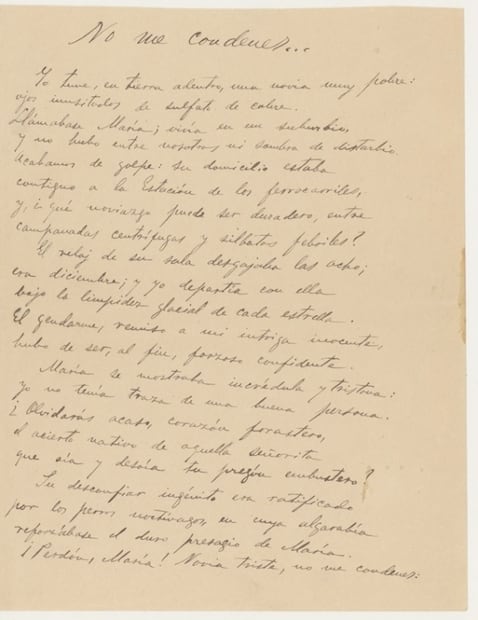 No me condenes...
Yo tuve, en tierra adentro, una novia muy pobre:
ojos inusitados de sulfato de cobre.
Llamábase María; vivía en un suburbio,
y no hubo entre nosotros ni sombra de disturbio.
Acabamos de golpe: su domicilio estaba
contiguo a la Estación de los ferrocarriles,
y, ¿qué noviazgo puede ser duradero, entre
campanadas centrífugas y silbatos febriles?
El reloj de su sala desgajaba las ocho;
era diciembre; y yo departía con ella
bajo la limpidez glacial de cada estrella.
El gendarme, remiso a mi intriga inocente,
hubo de ser, al fin, forzoso confidente.
María se mostraba incrédula y tristona:
yo no tenía traza de una buena persona.
¿Olvidarás acaso, corazón forastero,
el acierto nativo de aquella señorita
que oía y desoía tu pregón embustero?
Su desconfiar ingénito era ratificado
por los perros noctívagos, en cuya algarabía
reforzábase el duro presagio de María.
¡Perdón, María! Novia triste, no me condenes: